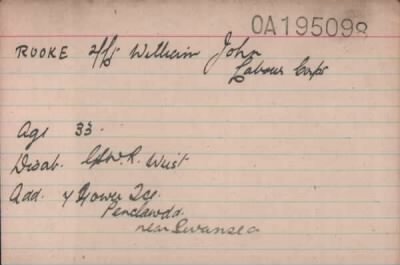 OA195098
ROOKE 2/Lt William John
Labour Corps
Age 33
Disab. G.S.W. R. Wrist
Add. Gower Tce.
Penclawdd.
near Swansea